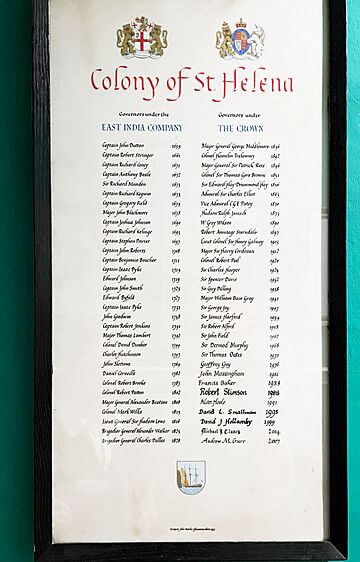 Colony of St Helena
Governors under the
EAST INDIA COMPANY
Captain John Dutton 1659
Captain Robert Stringer 1661
Captain Richard Coney 1671
Captain Anthony Beale 1672
Sir Richard Munden 1673
Captain Richard Keigwin 1673
Captain Gregory Field 1674
Major John Blackmore 1678
Captain Joshua Johnson 1690
Captain Richard Kelinge 1693
Captain Stephen Poirier 1697
Captain John Roberts 1708
Captain Benjamin Boucher 1711
Captain Isaac Pyke 1714
Edward Johnson 1719
Captain John Smith 1723
Edward Byfield 1727
Captain Isaac Pyke 1731
John Goodwin 1738
Captain Robert Jenkins 1741
Major Thomas Lambert 1742
Colonel David Dunbar 1744
Charles Hutchinson 1747
John Skottowe 1764
Daniel Corneille 1782
Colonel Robert Brooke 1787
Colonel Robert Patton 1802
Major General Alexander Beatson 1808
Colonel Mark Wilks 1813
Lieut General Sir Hudson Lowe 1816
Brigadier General Alexander Walker 1823
Brigadier General Charles Dallas 1828
Governors under
THE CROWN
Major General George Middlemore 1836
Colonel Hamelin Trelawney 1842
Major General Sir Patrick Ross 1846
Colonel Sir Thomas Gore Browne 1851
Sir Edward Hay Drummond Hay 1856
Admiral Sir Charles Elliot 1863
Vice Admiral C G E Patey 1870
Hudson Ralph Janisch 1873
W Grey Wilson 1890
Robert Armitage Sterndale 1897
Lieut Colonel Sir Henry Galwey 1903
Major Sir Harry Cordeaux 1912
Colonel Robert Peel 1920
Sir Charles Harper 1925
Sir Spencer Davis 1932
Sir Guy Pilling 1938
Major William Bain Gray 1941
Sir George Joy 1947
Sir James Harford 1954
Sir Robert Alford 1958
Sir John Field 1962
Sir Dermod Murphy 1968
Sir Thomas Oates 1971
Geoffrey Guy 1976
John Massingham 1981
Francis Baker 1984
Robert Stimson 1988
Alan Hoole 1991
David L. Smallman 1995
David J Hollamby 1999
Michael 2004
Andrew M. Gurr 2007